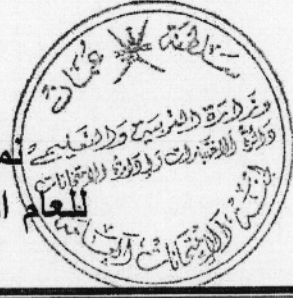 سلطنة عمان
وزارة التربية والتعليم
دائرة الاختبارات وإدارة الامتحانات
لجنة الامتحانات العامة
نم
للعام ا